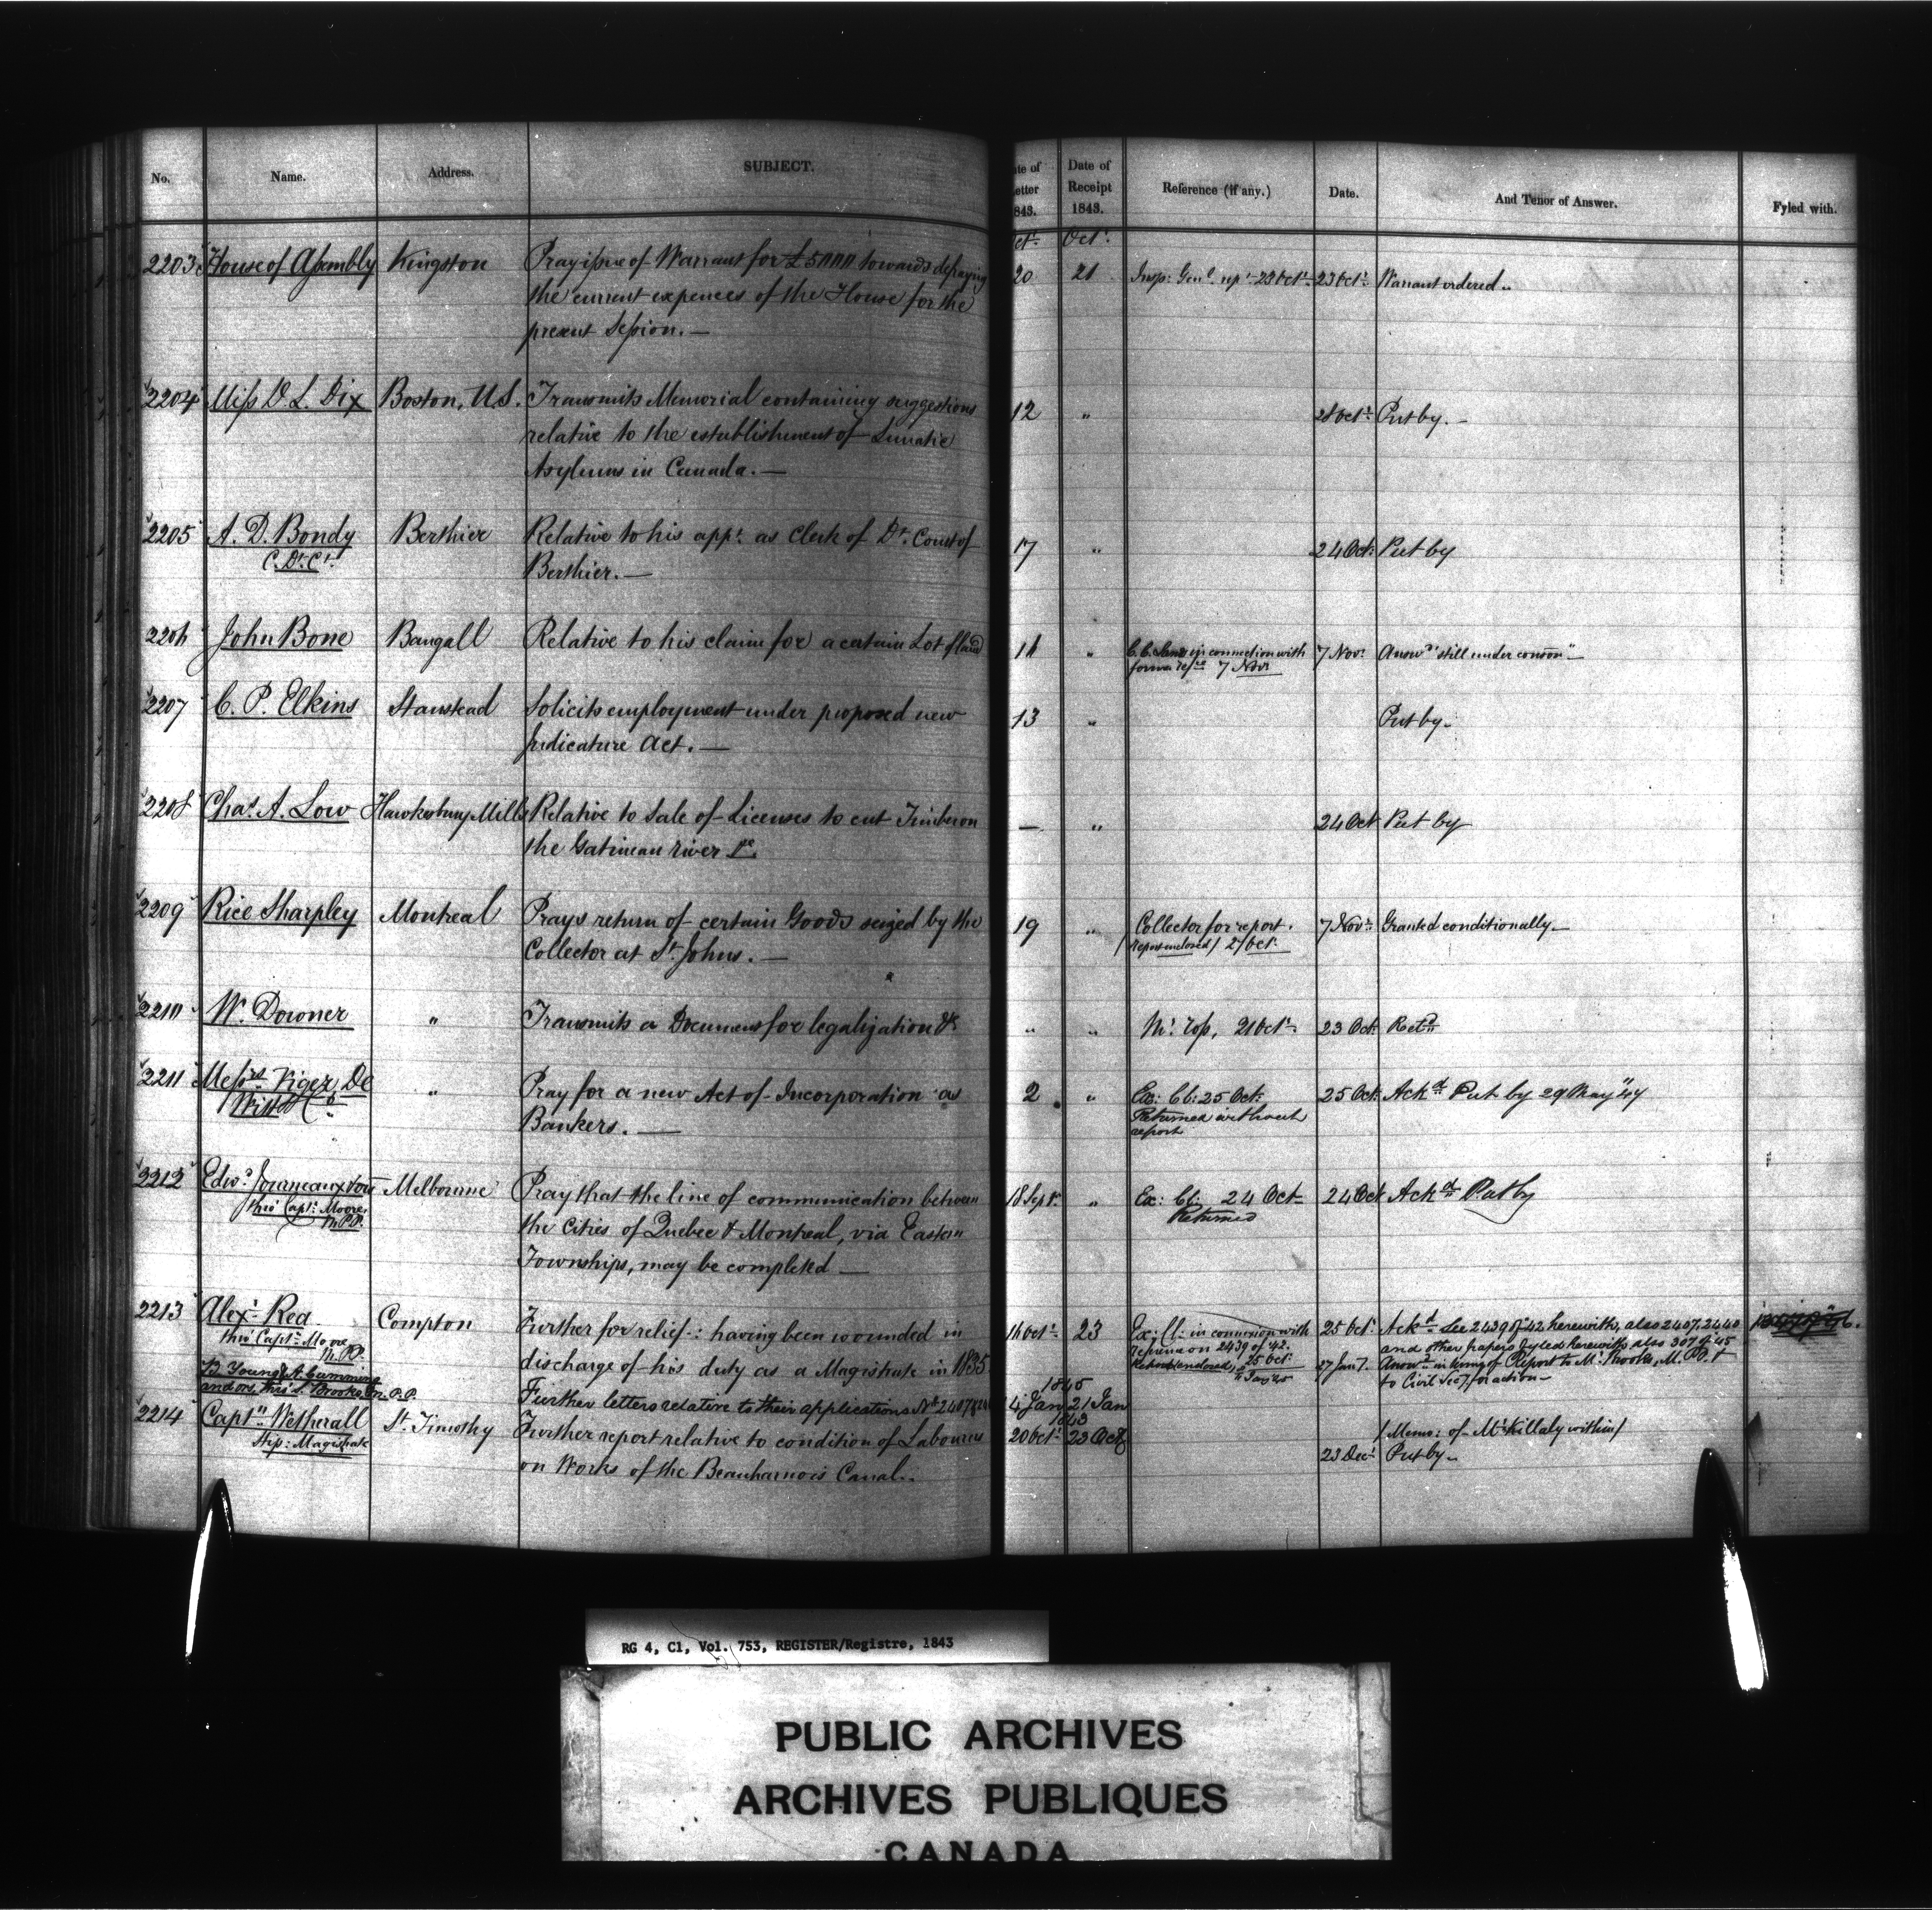 No. Name. Address. SUBJECT. Date of Letter 1843. Date of Receipt 1843. Reference (if any.) Date. And Tenor of Answer. Fyled with.
Oct. Oct.
2203 House of Assembly Kingston Pray issue of Warrant for £5000 towards defraying 20 21 Insp: Genl. rept. 23 Oct. 23 Oct. Warrant ordered..
the current expences of the House for the
present Session. —
2204 Miss D. L. Dix Boston, U.S. Transmits Memorial containing suggestions 12 " 28 Oct. Put by. —
relative to the establishment of Lunatic
Asylums in Canada. —
2205 A. D. Bondy Berthier Relative to his appt. as Clerk of Dt. Court of 17 " 24 Oct. Put by
C. Dt. Ct. Berthier. —
2206 John Bone Bangall Relative to his claim for a certain Lot of land 16 " C. C. Lands in connection with 7 Nov. Answd. "still under conson"
former refce 7 Novr
2207 C. P. Elkins Stanstead Solicits employment under proposed new 13 " Put by.
Judicature Act. —
2208 Chas. A. Low Hawkesbury Mills Relative to Sale of Licenses to cut Timber on — " 24 Oct Put by
the Gatineau river &c.
2209 Rice Sharpley Montreal Prays return of certain Goods seized by the 19 " Collector for report. 7 Nov. Granted conditionally —
Collector at St. Johns. — (report enclosed) 21 Oct.
2210 W. Downer " Transmits a Document for legalization &c " " 21 Oct. 23 Oct. Retd.
2211 Messrs. Viger De " Pray for a new Act of Incorporation as 2 " Ex: Cl: 25 Oct. 25 Oct. Ackd. Put by 29 May "44
Witt & Co. Bankers. — Returned without
report
2212 Edwd. Journeaux & ors Melbourne Pray that the line of communication between 18 Sept. " Ex: Cl: 24 Oct 24 Oct Ackd. Put by
thro' Capt. Moore, M.P.P. the Cities of Quebec & Montreal, via Eastern Returned
Townships, may be completed —
2213 Alexr. Rea Compton Further for relief: having been wounded in 16 Oct. 23 Ex: Cl: in connexion with 25 Oct. Ackd. See 2439 of 42 herewith, also 2407, 2440
thro' Capt. Moore M.P.P. discharge of his duty as a Magistrate in 1835 reference on 2439 of '42. and other papers fyled herewith also 307 of '45
Report enclosed, 25 Oct. 27 Jan. Answd. in terms of Report to Mr. Brooks, M.P.P.
to Civil Secy. for action —
B. Young & A. Cumming
and ors, thro' S. Brooks Esq. M.P.P. Further letters relative to their applications No. 2407 1845 4 Jan 21 Jan
1843
2214 Captn. Wetherall St. Timothy Further report relative to condition of Labourers 20 Oct. 23 Oct (Memo: of Mr. Killaly within)
Stip: Magistrate on Works of the Beauharnois Canal.. 23 Dec. Put by.
RG 4, C1, Vol. 753, REGISTER/Registre, 1843
PUBLIC ARCHIVES
ARCHIVES PUBLIQUES
CANADA